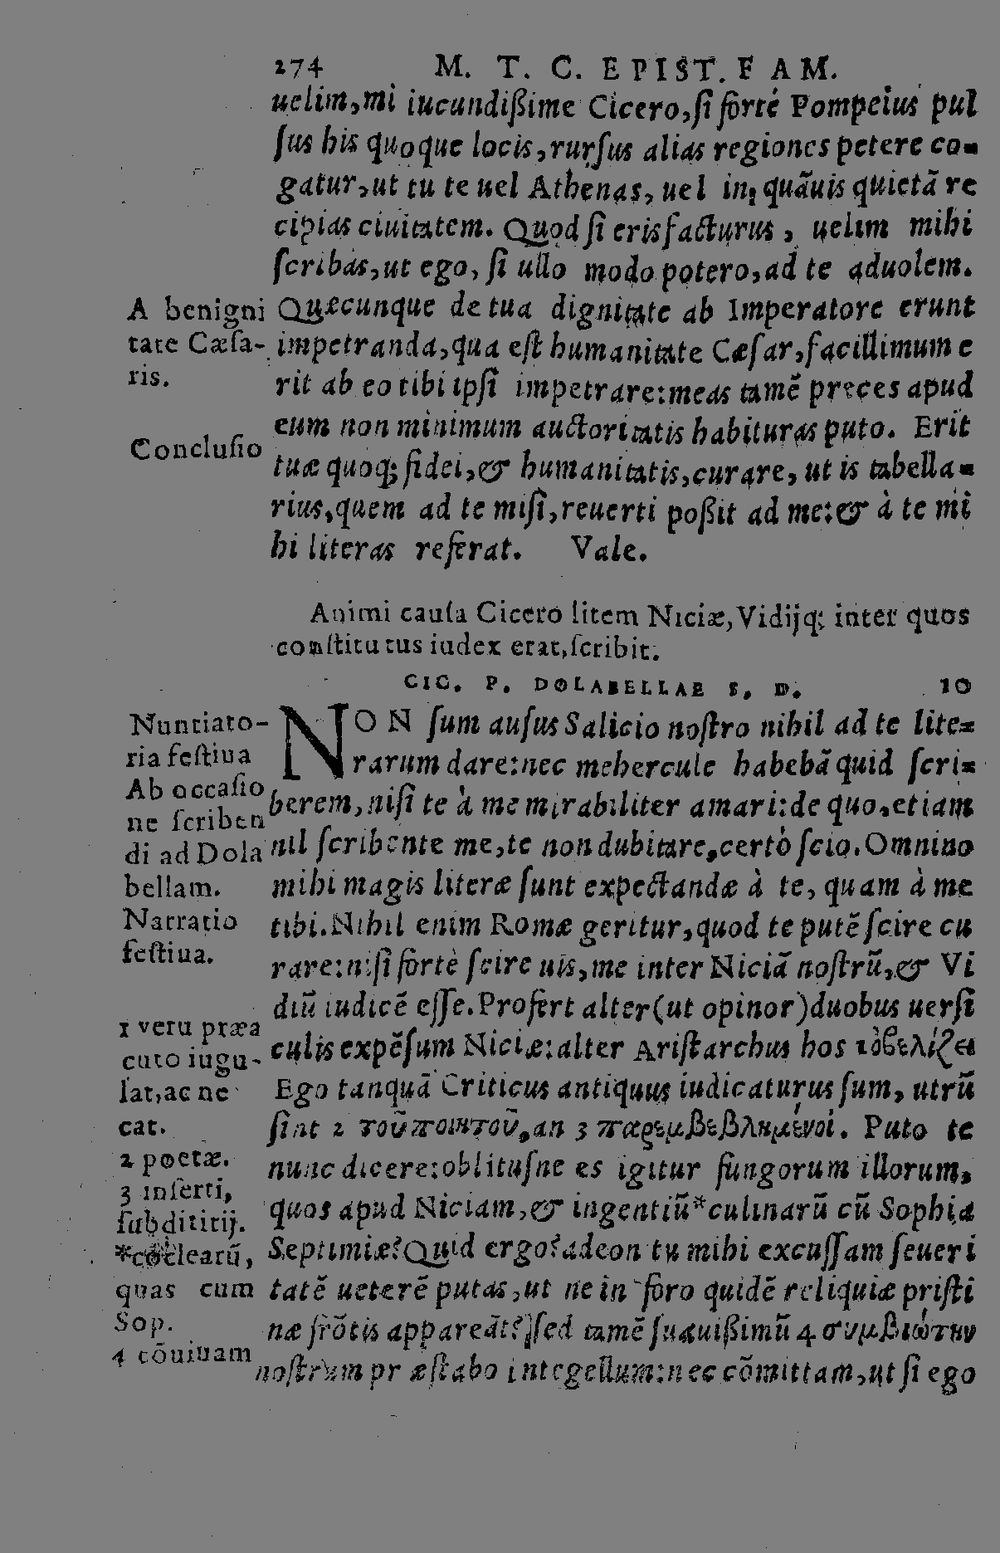 274 M. T. C. EPIST. FAM.
uelim, mi iucundißime Cicero, ſi forté Pompeius pul
ſus his quoque locis, rurſus alias regiones petere co-
gatur, ut tu te uel Athenas, uel in quãuis quietã re
cipias ciuitatem. Quod ſi eris facturus, uelim mihi
ſcribas, ut ego, ſi ullo modo potero, ad te aduolem.
A benigni
tate Cæſa-
ris.
Quæcunque de tua dignitate ab Imperatore erunt
impetranda, qua eſt humanitate Cæſar, facillimum e
rit ab eo tibi ipſi impetrare: meas tamẽ preces apud
eum non minimum auctoritatis habituras puto. Erit
Concluſio
tuæ quoq; fidei, & humanitatis, curare, ut is tabella-
rius, quem ad te miſi, reuerti poßit ad me: & à te mi
hi literas referat. Vale.
Animi cauſa Cicero litem Niciæ, Vidijq; inter quos
conſtitutus iudex erat, ſcribit.
CIC. P. DOLABELLAE S. D. 10
Nuntiato-
ria feſtiua
Ab occaſio
ne ſcriben
di ad Dola
bellam.
Narratio
feſtiua.
NON ſum auſus Salicio noſtro nihil ad te lite-
rarum dare: nec mehercule habebã quid ſcri-
berem, niſi te à me mirabiliter amari: de quo, etiam
nil ſcribente me, te non dubitare, certò ſcio. Omnino
mihi magis literæ ſunt expectandæ à te, quam à me
tibi. Nihil enim Romæ geritur, quod te putẽ ſcire cu
rare: niſi fortè ſcire uis, me inter Niciã noſtrũ, & Vi
diũ iudicẽ eſſe. Profert alter (ut opinor) duobus uerſi
culis expẽſum Niciæ: alter Ariſtarchus hos 1 ὀβελίζει
Ego tanquã Criticus antiquus iudicaturus ſum, utrũ
ſint 2 τοῦ ποιητοῦ, an 3 παρεμβεβλημένοι. Puto te
nunc dicere: oblituſne es igitur fungorum illorum,
quos apud Niciam, & ingentiũ * culinarũ cũ Sophia
Septimiæ? Quid ergo? adeon tu mihi excuſſam ſeueri
tatẽ ueterẽ putas, ut ne in foro quidẽ reliquiæ priſti
næ frõtis appareãt? ſed tamẽ ſuauißimũ 4 συμβιώτην
noſtrum præſtabo integellum: nec cõmittam, ut ſi ego
1 veru præa
cuto iugu-
lat, ac ne
cat.
2 poetæ.
3 inſerti,
ſubdititij.
* coclearũ,
quas cum
Sop.
4 cõuiuam